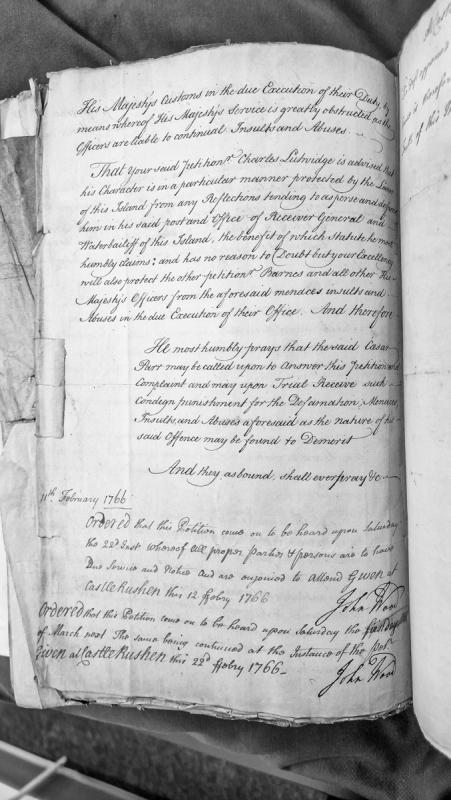 His Majestys Customs in the due Execution of their Duty, by
means whereof His Majestys Service is greatly obstructed, as the
Officers are liable to continual Insults and Abuses.
That your said Petitionr Charles Lutwidge is advised that
his Character is in a particular manner protected by the Laws
of this Island from any Reflections tending to asperse and defame
him in his said post and Office of Receiver General and
Waterbailiff of this Island, the benefit of which Statute he most
humbly claims; and has no reason to Doubt but your Excellency
will also protect the other petitionr Barnes and all other His
Majestys Officers from the aforesaid menaces insults and
Abuses in the due Execution of their Office. And therefore
He most humbly prays that the said Cæsar
Parr may be called upon to answer this Petition and
Complaint and may upon Trial Receive such
Condegn punishment for the Defamation, Menaces,
Insults, and Abuses aforesaid as the nature of his
said Offence may be found to Demerit
And they, as bound, shall ever pray &c
11th February 1766
Ordered that this Petition come on to be heard upon Saturday
the 22d Inst whereof all proper parties & persons are to have
Due Service and Notice and are enjoined to attend Given at
Castle Rushen this 12 Febry 1766
John Wood
Ordered that this Petition come on to be heard upon Saturday the
of March next The same being continued at the Instance of the Petr
Given at Castle Rushen this 22d Febry 1766
John Wood